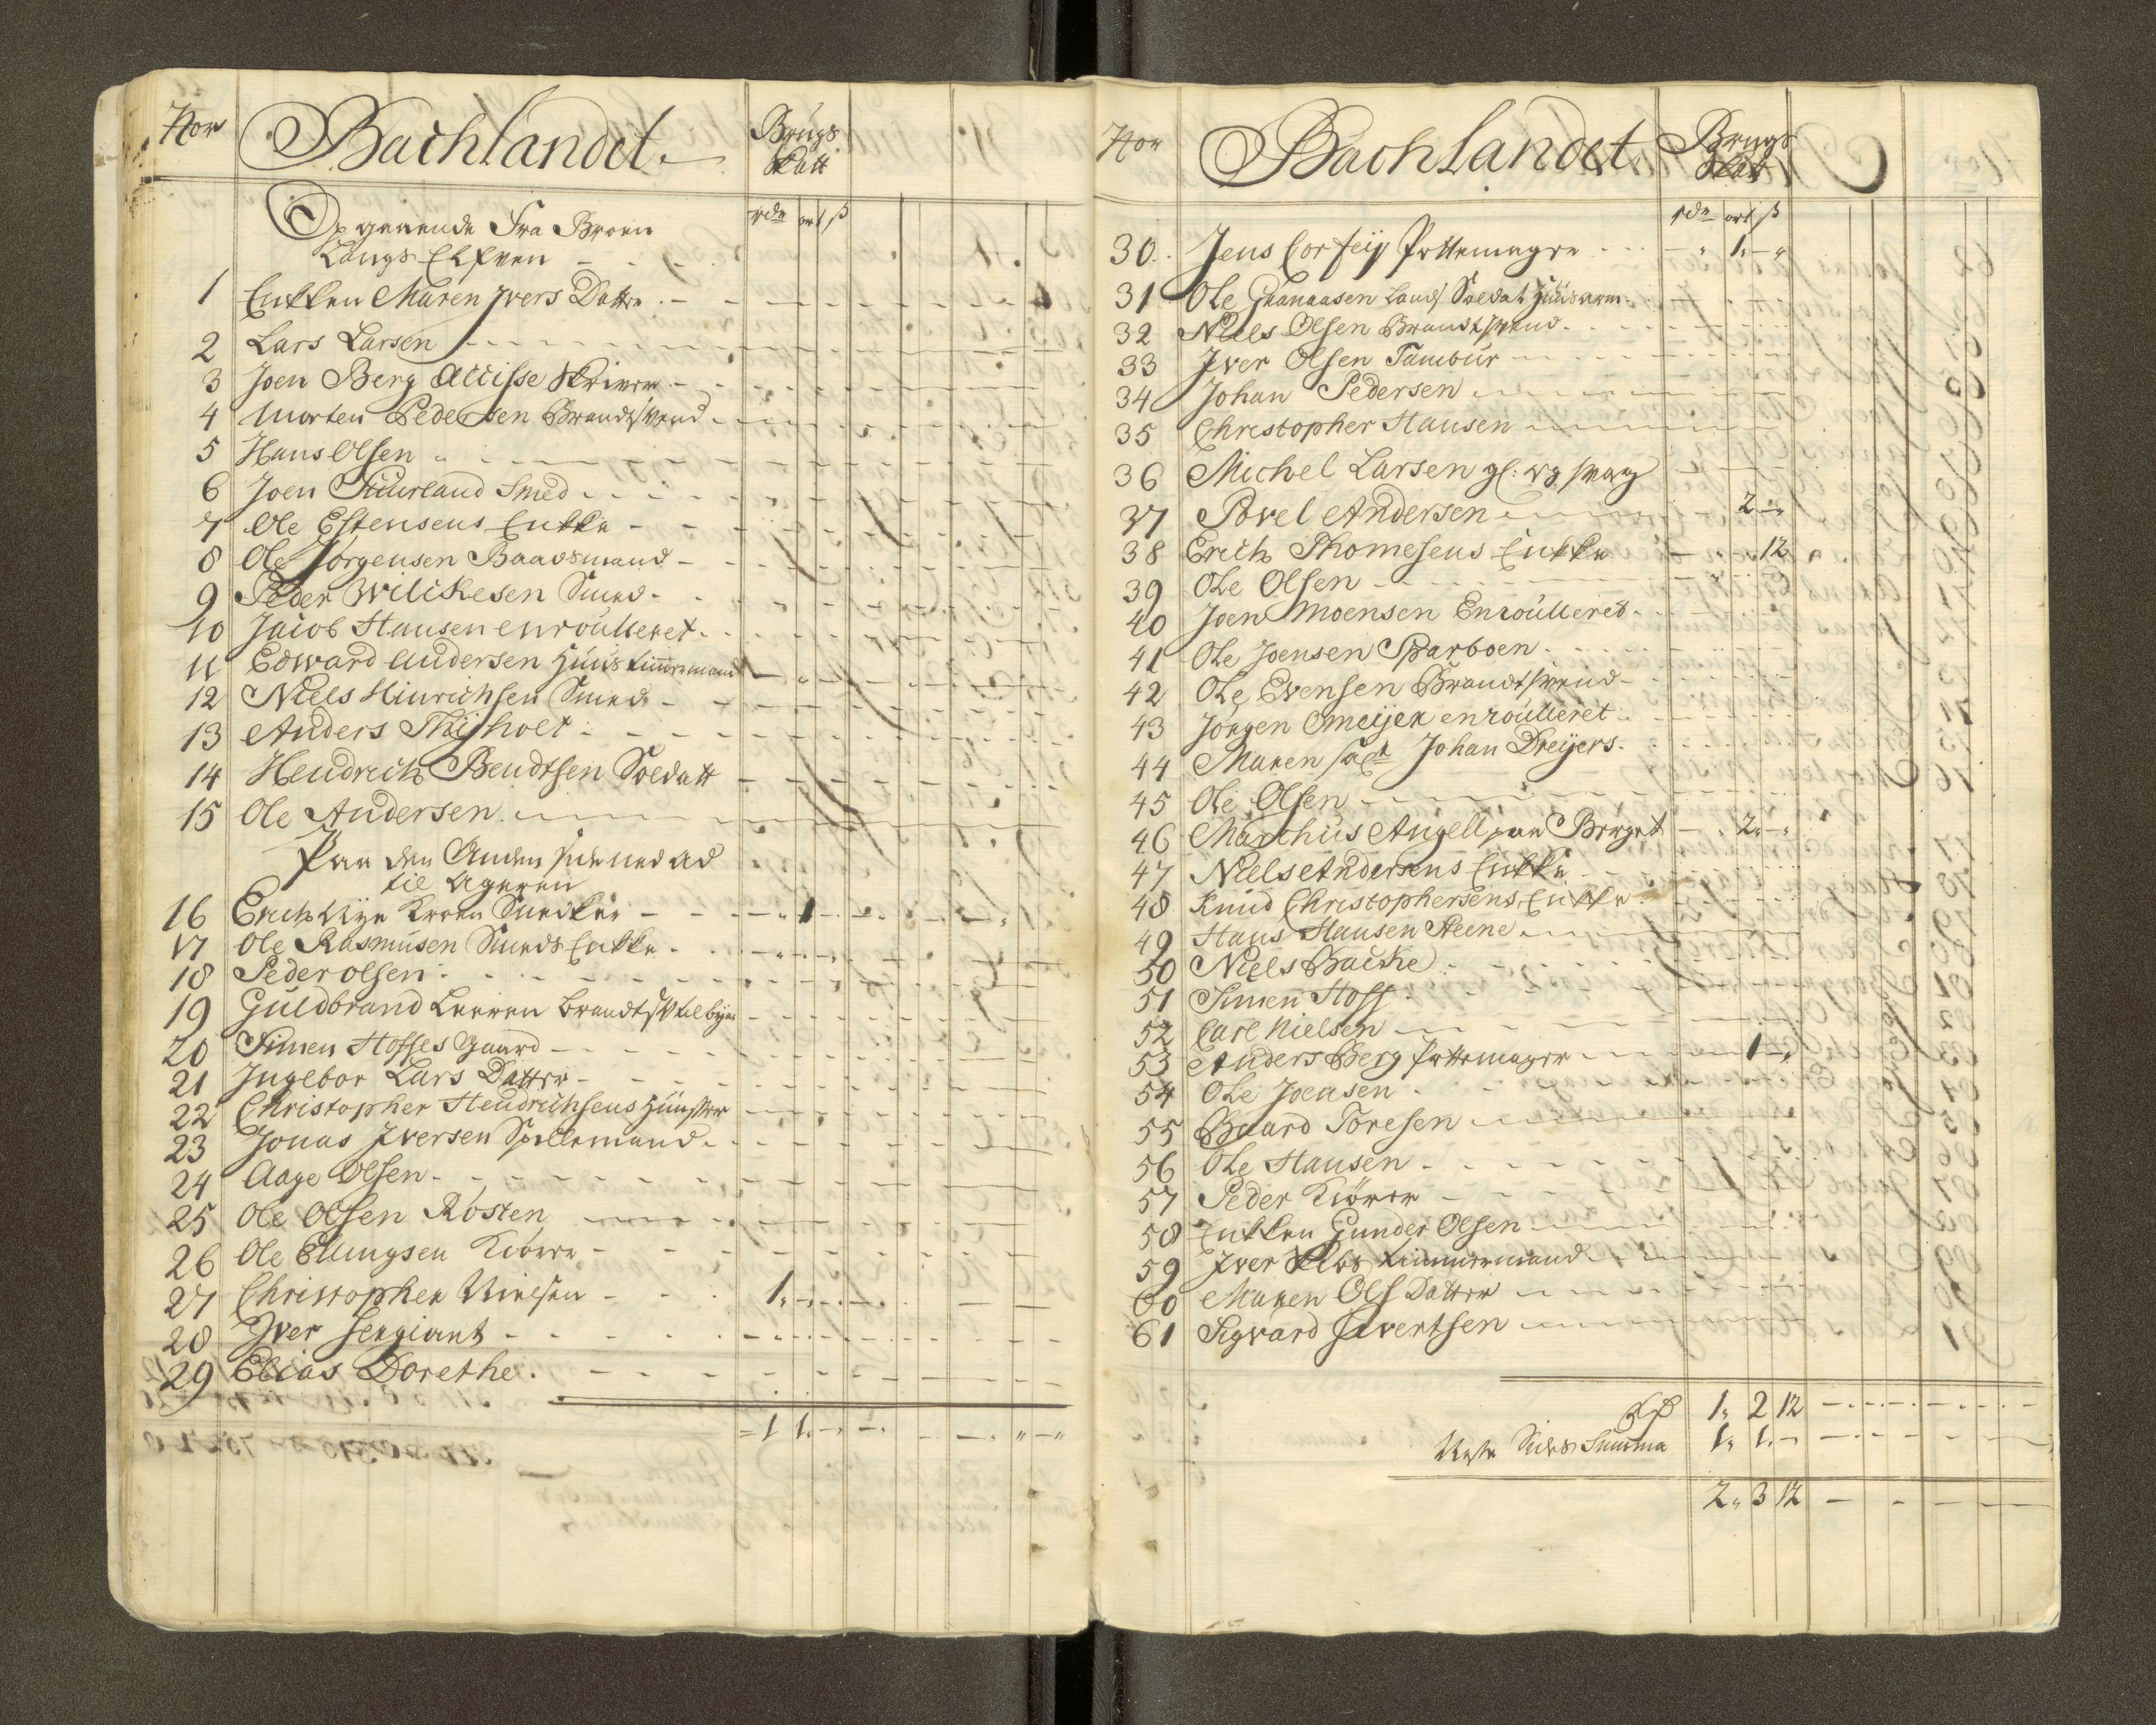 Nor Bachlandet. Brugs
Skatt
Op gaaende Fra Broen rdr ort ß
Langs Elfven
1 Enkken Maren Jvers Datter
2 Lars Larsen
3 Joen Berg Accisse Skriver
4 Morten Pedersen Brandtsvend
5 Hans Olsen
6 Joen Smed
7 Ole Estensens Enkke
8 Ole Jorgensen Baadsmand
9 Peder Wilikesen Smed
10 Jacob Hansen enroulleret
11 Edward Andersen Huustimmermand
12 Niels Hinrichsen Smed
13 Anders Thijholt
14 Hendrich Bendtsen Soldatt
15 Ole Andersen
Paa den Anden side ned ad
til Ageren
16 Erich Nye Kroen Snedker 1
17 Ole Rasmusen Smeds Enkke
18 Peder olsen
19 Guldbrand Brandts
20 Simen Hosses Gaard
21 Jngebor Lars Datter
22 Christopher Hendrichsens
23 Jonas Jversen Spillemand
24 Aage Olsen
25 Ole Olsen Rosten
26 Ole Ellingsen Kiörer
27 Christopher Nielsen 1
28 Jver Sergiant
29 Elias Dorethe
1 1
Nor Bachlandet Brugs
Skatt
rdr ort ß
30 Jens Corfeij Pottemager 1
31 Ole Land Soldat Huusarm
32 Niels Olsen Brandtsvend
33 Jver Olsen Tambur
34 Johan Pedersen
35 Christopher Hansen
36 Michel Larsen gl: og svag
37 Povel Andersen 2
38 Erich Thomesens Enkke 12
39 Ole Olsen
40 Joen Moensen Enroulleret
41 Ole Joensen Sparboen
42 Ole Evensen Brandtsvend
43 Jörgen Omeijer enroulleret
44 Maren Johan Dreijers
45 Ole Olsen
46 Marchus Angell paa Berget 2
47 Niels Andersens Enkke
48 Knud Christophersens Enkke
49 Hans Hansen Steene
50 Niels Backe
51 Simen Hoss
52 Carl Nielsen
53 Anders Berg Pottemager 1
54 Ole Joensen
55 Baard Toresen
56 Ole Hansen
57 Peder Kiörer
58 Enkken Gunder Olsen
59 Jver timmermand
60 Maren Ols Datter
61 Sigvard Sivertsen
1 2 12
Sides Summa 1 1
2 3 12